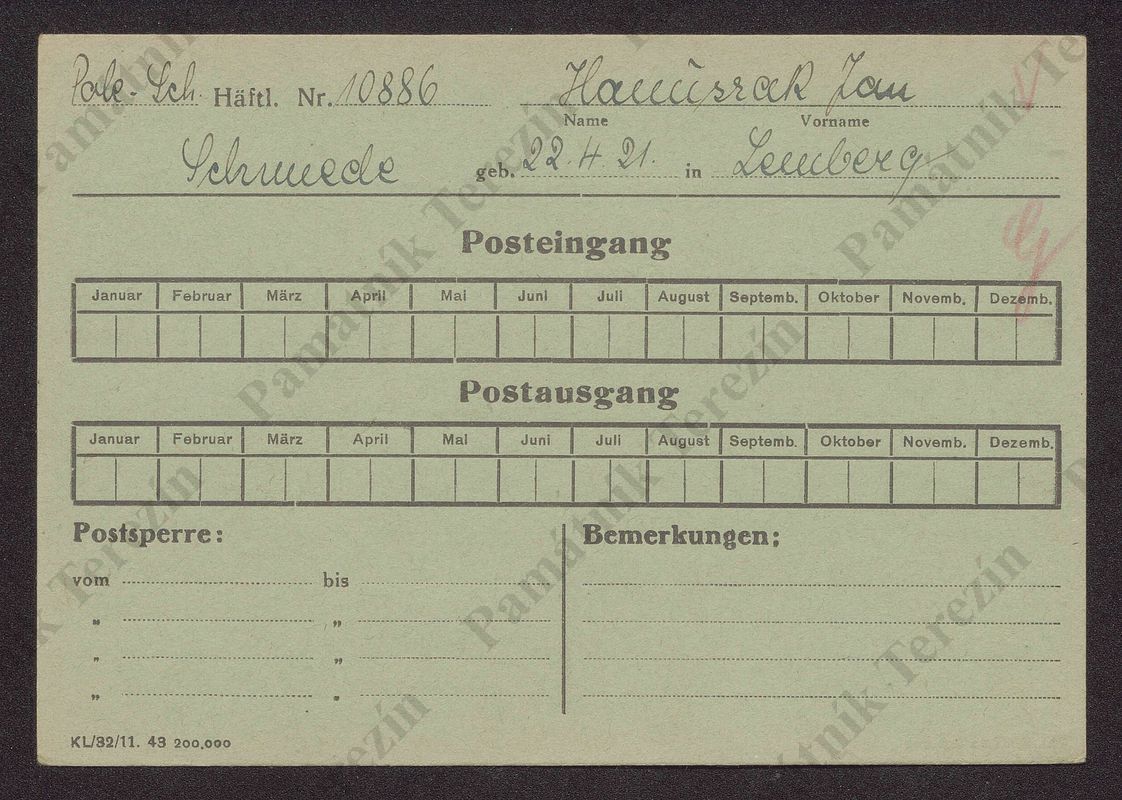 Pole - Sch. Häftl. Nr. 10886 Hanuszak Jan
Name Vorname
Schmede geb. 22. 4. 21. in Lemberg
Posteingang
Januar Februar März April Mai Juni Juli August Septemb. Oktober Novemb. Dezemb.
Postausgang
Januar Februar März April Mai Juni Juli August Septemb. Oktober Novemb. Dezemb.
Postsperre: Bemerkungen:
vom bis
" "
" "
" "
KL/32/11. 43 200.000
Památník Terezín